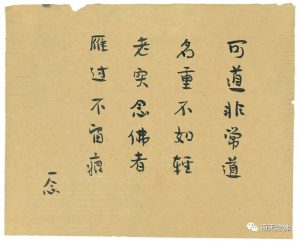 可道非常道
名重不如轻
老实念佛者
雁过不留痕
一念